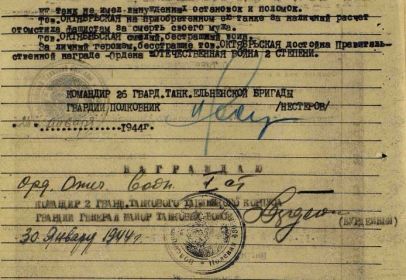 ее танк не имел вынужденных остановок и поломок.
тов.ОКТЯБРЬСКАЯ на приобретенном ею танке за наличный расчет
отомстила фашистам за смерть своего мужа.
Тов.ОКТЯБРЬСКАЯ смелый, бесстрашный воин.
За личный героизм, бесстрашие тов.ОКТЯБРЬСКАЯ достойна Правитель-
ственной награде - Ордена ОТЕЧЕСТВЕННАЯ ВОЙНА 2 СТЕПЕНИ.
КОМАНДИР 26 ГВАРД.ТАНК.ЕЛЬНЕНСКОЙ БРИГАДЫ
ГВАРДИИ ПОЛКОВНИК /НЕСТЕРОВ/
января 1944г.
НАГРАЖДАЮ
Орд. Отеч. Войн. I ст
КОМАНДИР 2 ГВАРД.ТАНКОВОГО ТАЦИНСКОГО КОРПУСА
ГВАРДИИ ГЕНЕРАЛ МАЙОР ТАНКОВЫХ ВОЙСК
(БУРДЕЙНЫЙ)
30 Января 1944 г.